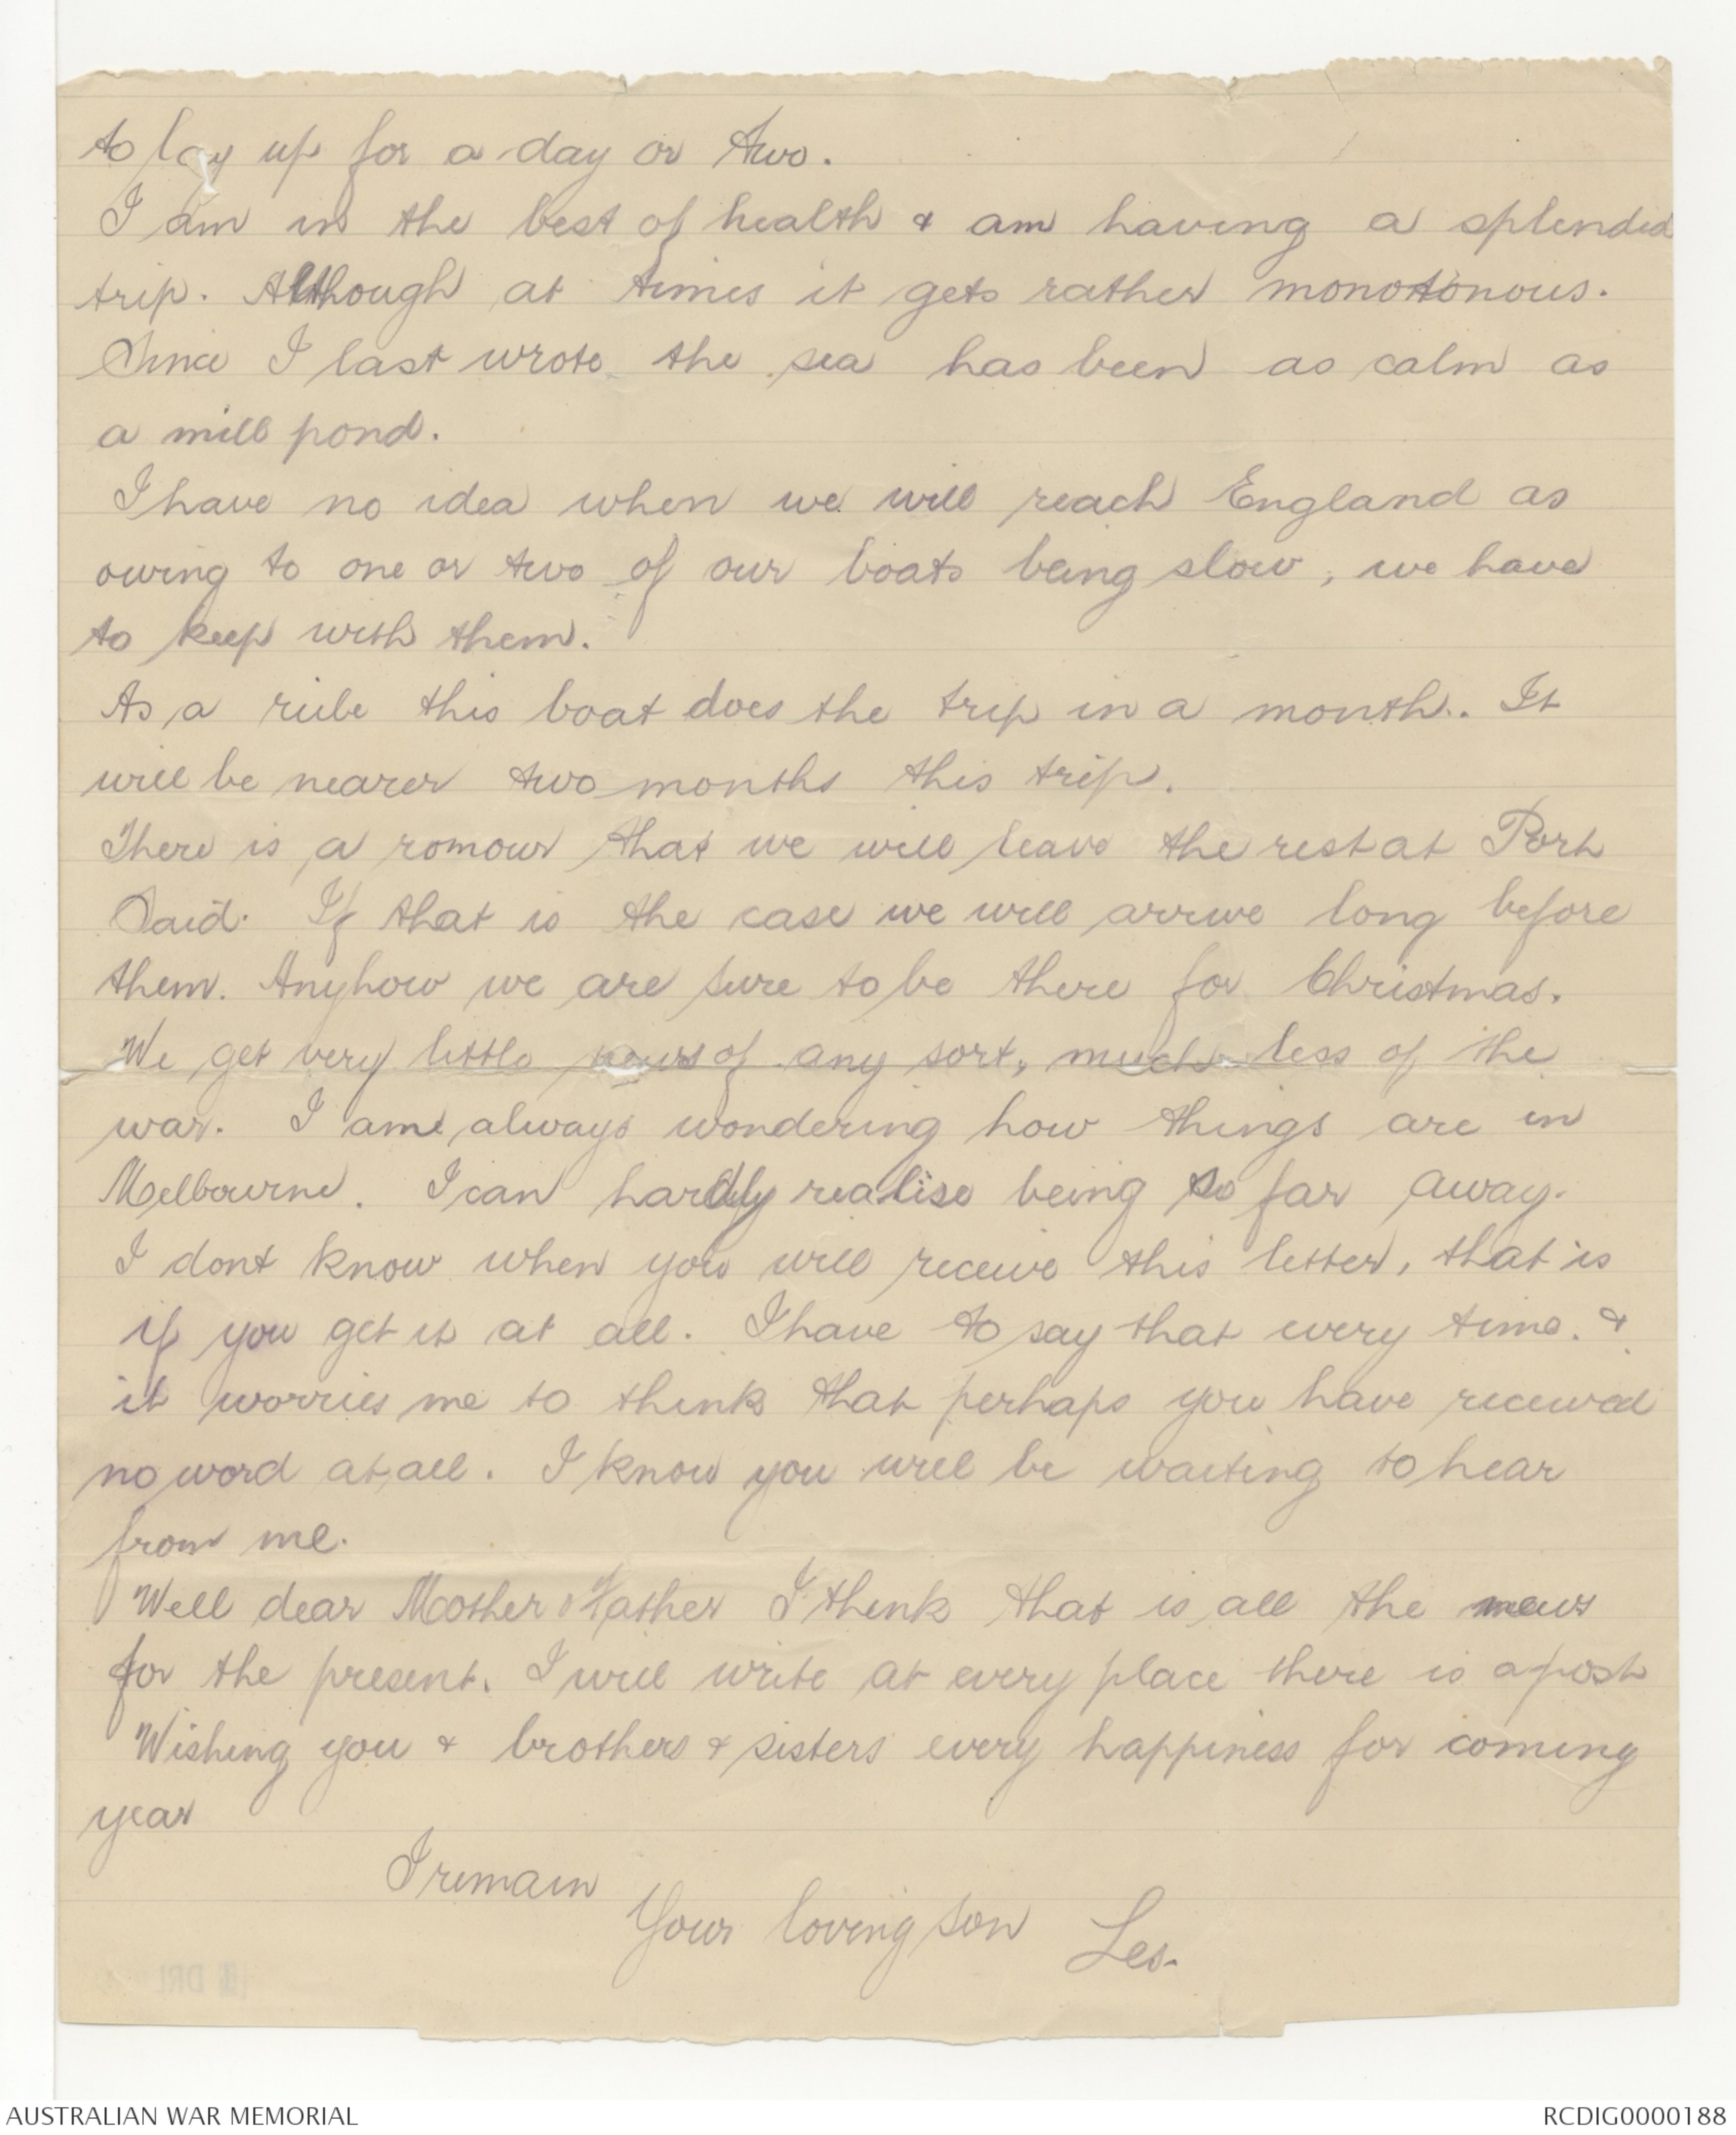 to lay up for a day or two.
I am in the best of health & am having a splendid
trip. Although at times it gets rather monotonous.
Since I last wrote the sea has been as calm as
a mill pond.
I have no idea when we will reach England as
owing to one or two of our boats being slow, we have
to keep with them.
As a rule this boat does the trip in a month. It
will be nearer two months this trip.
There is a romour that we will leave the rest at Port
Said. If that is the case we will arrive long before
them. Anyhow we are sure to be there for Christmas.
We get very little news of any sort, much less of the
war. I am always wondering how things are in
Melbourne. I can hardly realise being so far away.
I dont know when you will receive this letter, that is
if you get it at all. I have to say that every time. &
it worries me to think that perhaps you have received
no word at all. I know you will be waiting to hear
from me.
Well dear Mother & Father I think that is all the news
for the present. I will write at every place there is a post
Wishing you & brothers & sisters every happiness for coming
year
I remain
Your loving son Les.
AUSTRALIAN WAR MEMORIAL
RCDIG0000188